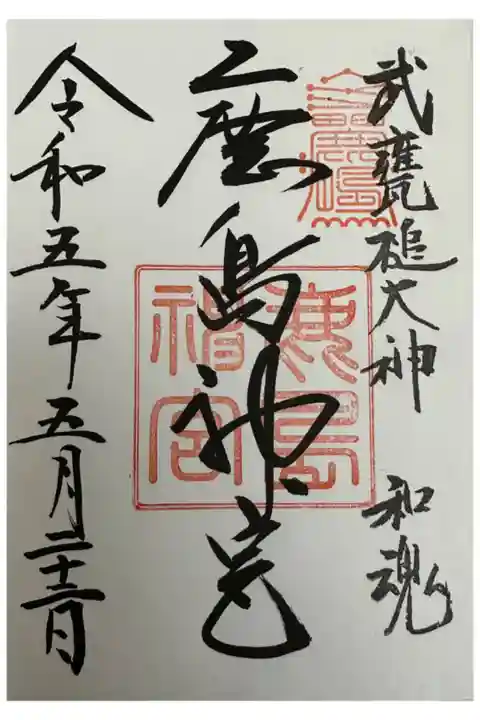 武甕槌大神 和魂
鹿島神宮
鹿島
神宮
令和五年五月二十三日